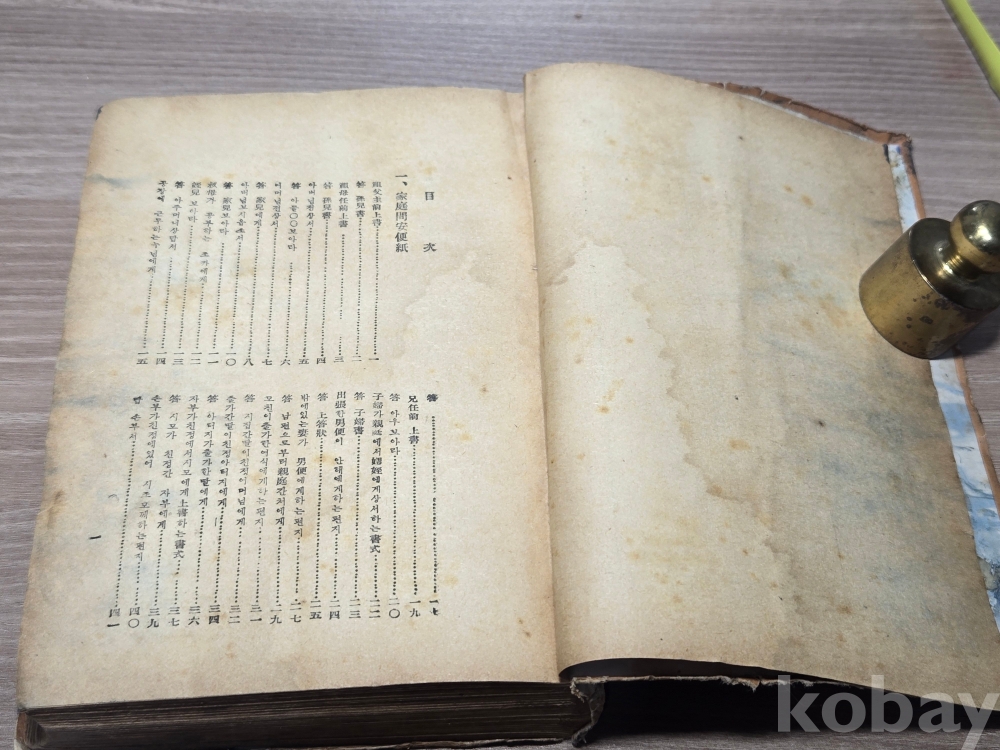 目次
一、家庭問安便紙
祖父主前上書 一
答 孫兒書 二
祖母任前上書 三
答 孫兒書 四
아버님전상서 五
答 아들〇〇보아라 六
어머님전상서 七
答 家兒에게 八
아버님보지옵소서 一〇
答 家兒보아라 一一
叔母가 공부하는 조카에게 一二
姪兒보아라 一三
答 아주머니장답서 一四
공장에 근무하는누님에게 一五
答 一七
兄任前 上書 一九
答 아우보아라 二〇
子婦가親庭에서에게상서하는書式 二二
答 子婦書 二三
出張한男便이 안해에게하는편지 二四
答 上答狀 二五
밖에있는妻가 男便에게하는편지 二七
答 남편으로부터親庭간처에게 二九
모친이출가한여식에게하는편지 三一
答 시집간딸이친정어머님에게 三二
출가간딸이친정아버지에게 三四
答 아버지가출가한딸에게 三六
자부가친정에서시모에게上書하는書式 三七
答 시모가 친정간 자부에게 三九
손부가친정에있어 시조모께하는편지 四〇
답 손부서 四一
一
kobay